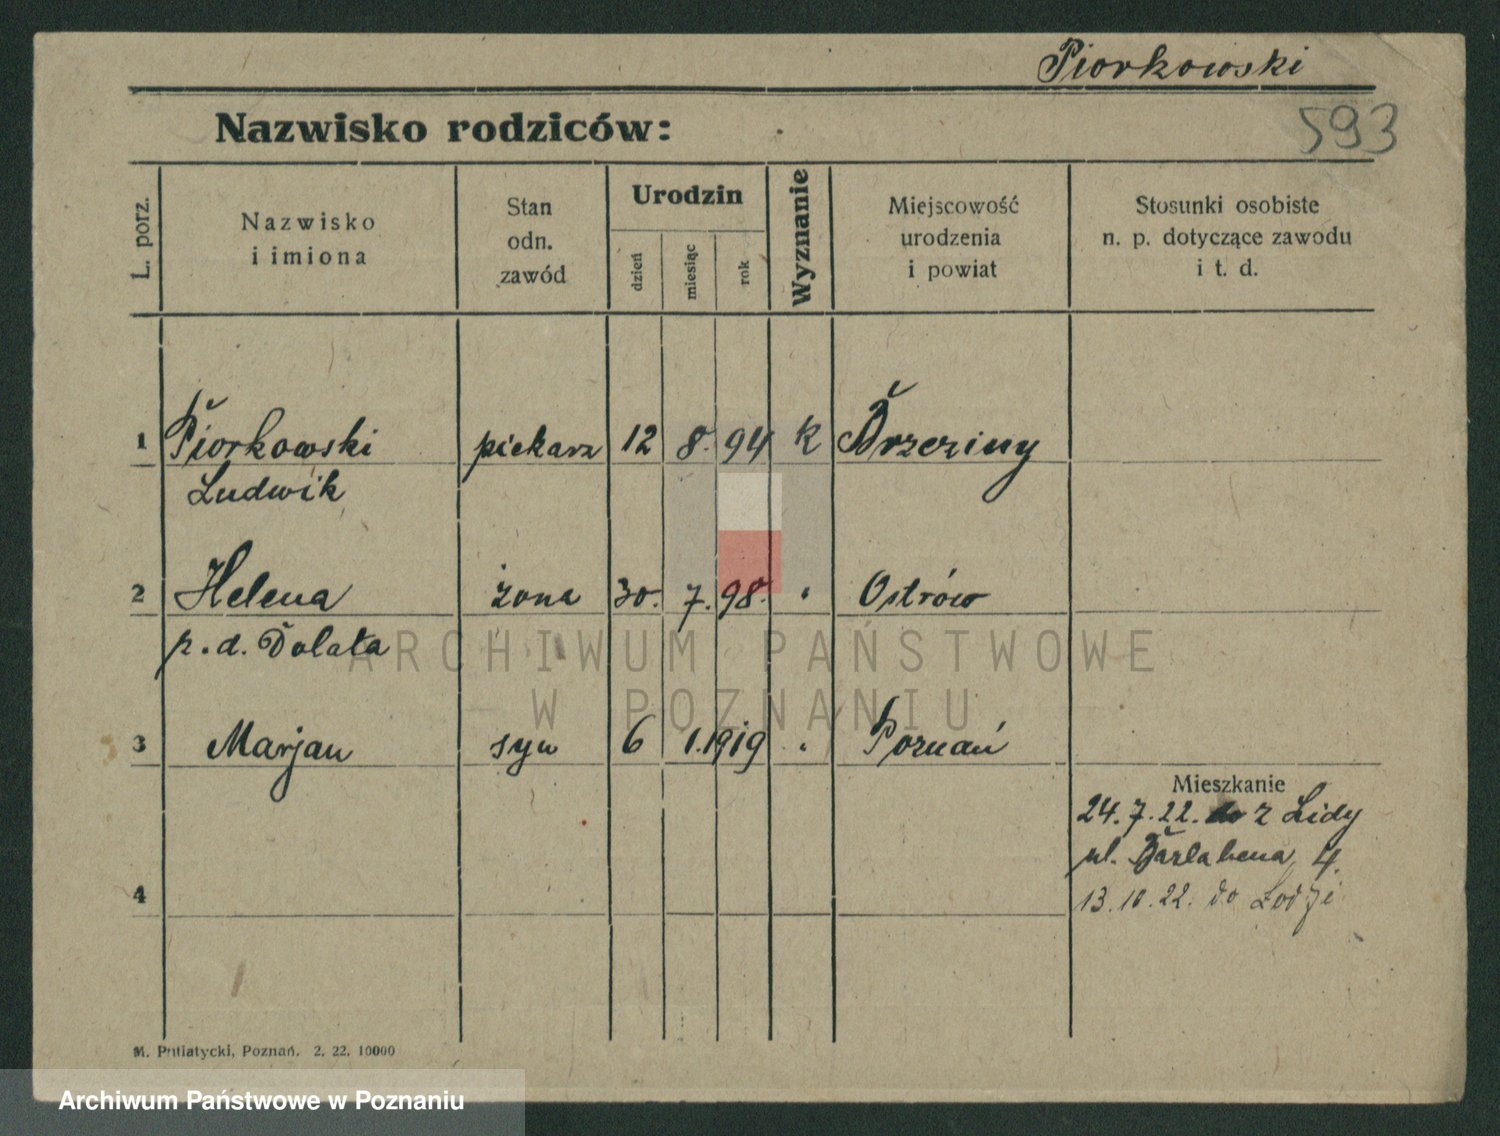 Piorkowski
593
Nazwisko rodziców:
L. porz.
Nazwisko
i imiona
Stan
odn.
zawód
Urodzin
dzień
miesiąc
rok
Wyznanie
Miejscowość
urodzenia
i powiat
Stosunki osobiste
n. p. dotyczące zawodu
i t. d.
1 Piorkowski piekarz 12 8. 94 k Brzeziny
Ludwik
2 Helena żona 30. 7. 98. " Ostrów
p. d. Dolata
ARCHIWUM PAŃSTWOWE
W POZNANIU
3 Marjan syn 6 1. 1919 " Poznań
Mieszkanie
24. 7. 22. z Lidy
ul. 4.
13. 10. 22. do Łodzi
4
M. Putiatycki, Poznań. 2. 22. 10000
Archiwum Państwowe w Poznaniu